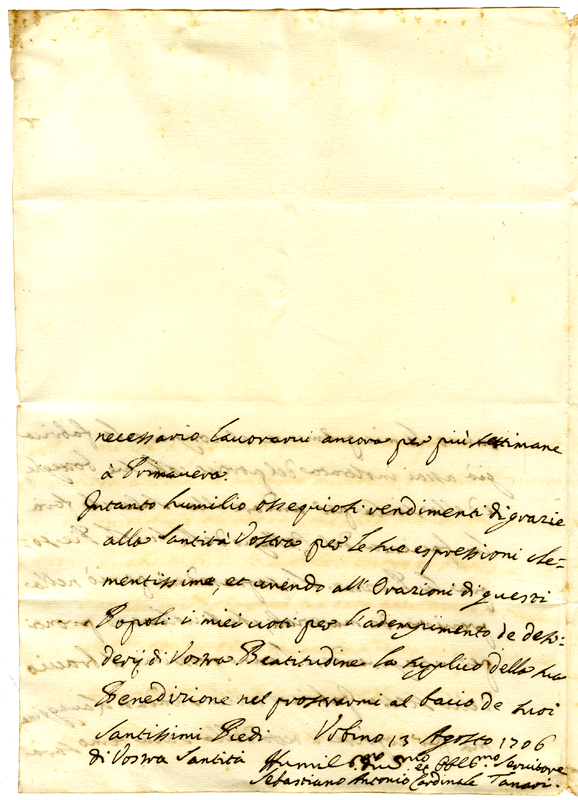 necessario lavorarvi ancora per più settimane
à Primavera.
Intanto humilio ossequiosi rendimenti di grazie
alla Santità Vostra per le sue espressioni cle=
mentissime, et unendo all'Orazioni di questi
Popoli i miei voti per l'adempimento de desi=
derij di Vostra Beatitudine la supplico della sua
Benedizione nel prostrarmi al bacio de suoi
Santissimi Piedi Urbino 13 Agosto 1706
di Vostra Santità
Humil.mo et Obbl.mo Servitore
Sebastiano Antonio Cardinale Tanari.